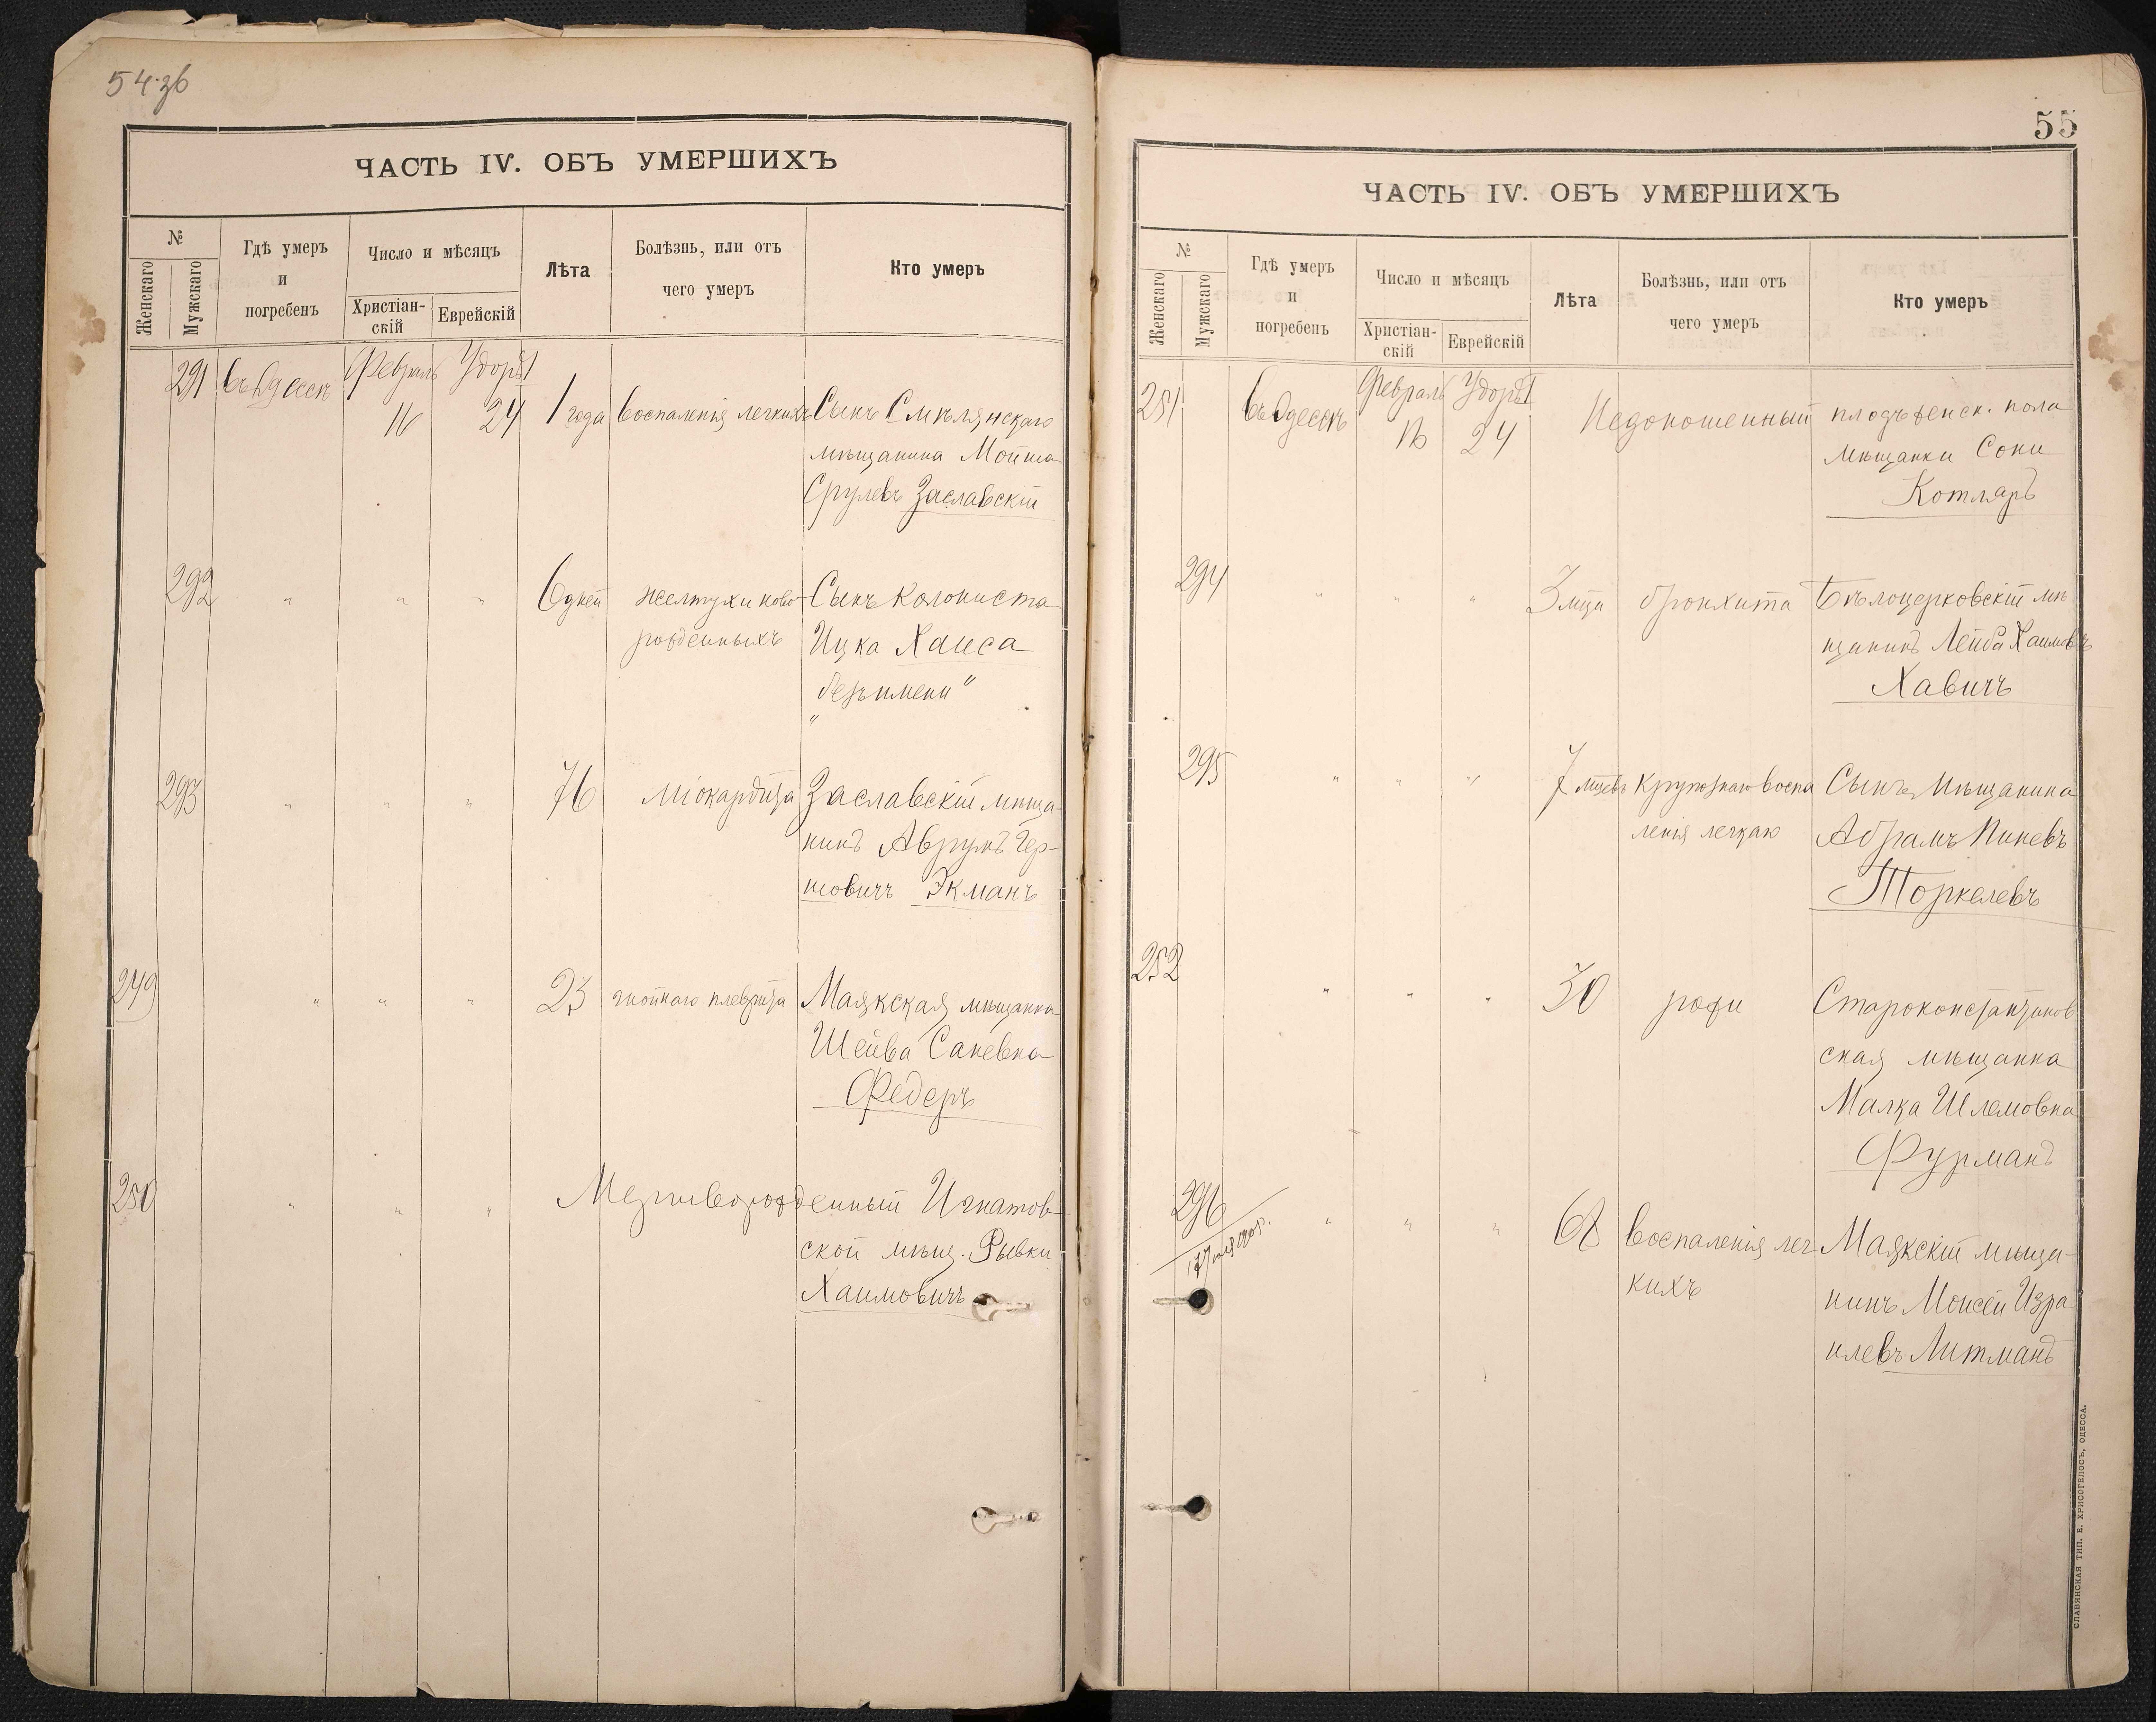 54 зв
ЧАСТЬ IV. ОБЪ УМЕРШИХЪ
№
Женскаго
Мужскаго
Гдѣ умеръ
и
погребенъ
Число и мѣсяцъ
Христіан-
скій
Еврейскій
Лѣта
Болѣзнь, или отъ
чего умеръ
Кто умеръ
291 въ Одессѣ Февраль
16 24 1 года воспаленія легкихъ Сынъ Смѣлянскаго
мѣщанина Мойша
Срулевъ Заславскій
292 " " " 6 дней желтухи ново- Сынъ колониста
рожденныхъ Ицка Хаиса
"безъ имени"
293 " " " 76 міокардита Заславскій мѣща-
нинъ Аврумъ Гер-
шовичъ Экманъ
249 " " " 23 гнойнаго плеврита Маякская мѣщанка
Шейва Саневна
Федеръ
250 " " " Мертворожденный Игнатов
ской мѣщ. Рывки
Хаимовичъ
55
ЧАСТЬ IV. ОБЪ УМЕРШИХЪ
№
Женскаго
Мужскаго
Гдѣ умеръ
и
погребенъ
Число и мѣсяцъ
Христіан-
скій
Еврейскій
Лѣта
Болѣзнь, или отъ
чего умеръ
Кто умеръ
251 въ Одессѣ Февраль
16 24 Недоношенный плодъ женск. пола
мѣщанки Сони
Котляръ
294 " " " 3 мца бронхита Бѣлоцерковскій мѣ
щанинъ Лейба Хаимовъ
Хавичъ
295 " " " 7 мцевъ крупознаго воспа Сынъ мѣщанина
ленія легкаго Абрамъ Пиневъ
Торкелевъ
252 " " " 30 рожи Староконстантинов
ская мѣщанка
Малка Шлемовна
Фурманъ
296 " " " 68 воспаленія лег Маякскій мѣща-
кихъ нинъ Моисей Изра
илевъ Литманъ
СЛАВЯНСКАЯ ТИП. Е. ХРИСОГЕЛОСЪ, ОДЕССА.